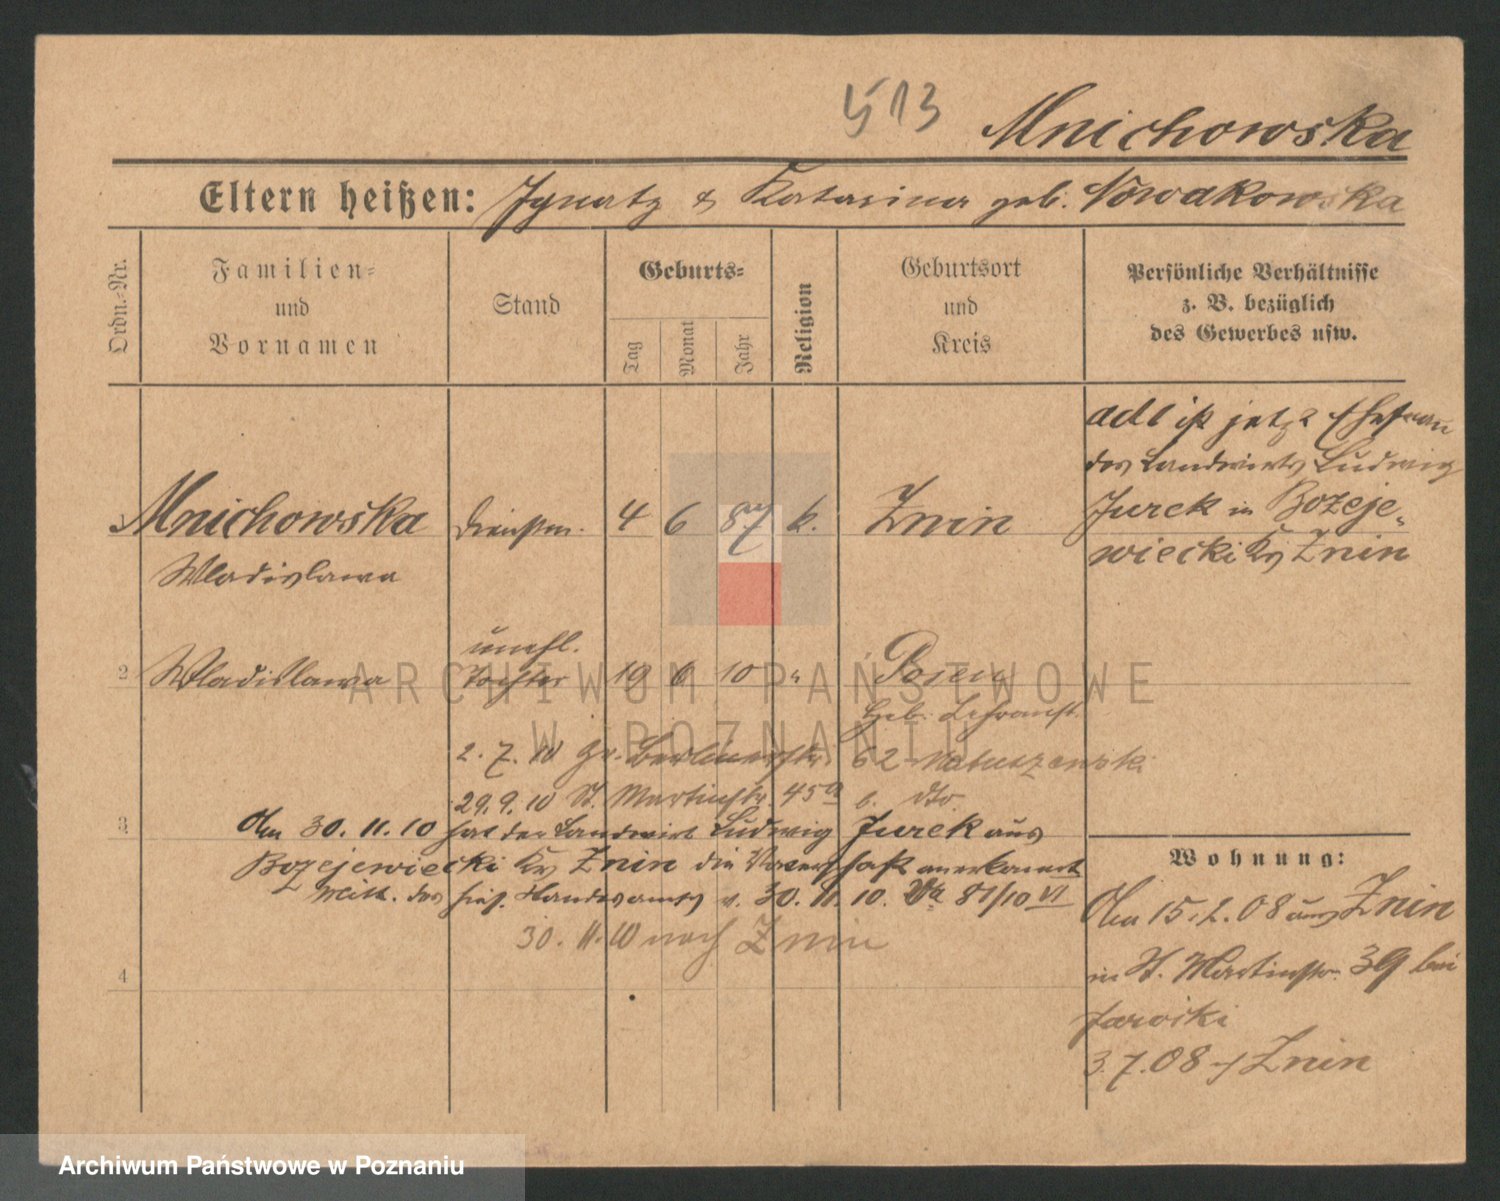 513
Mnichowska
Eltern heißen: Ignatz & Katarina geb. Nowakowska
Ordn.-Nr.
Familien-
und
Vornamen
Stand
Geburts-
Tag
Monat
Jahr
Religion
Geburtsort
und
Kreis
Persönliche Verhältnisse
z. B. bezüglich
des Gewerbes usw.
ad 1 ist jetzt Ehefrau
des Landwirts Ludwig
Jurek in Bozeje-
wiecki Kr Znin
1 Mnichowska Dienstm. 4 6 87 k. Znin
Wladislawa
2 Wladislawa unehl. Tochter 19 6 10 " Posen
Heb. Lehranst.
2. 7. 10 Gr. Berlinerstr 62 Matuszewski
29. 9. 10 St. Martinstr. 45a b. dto
3
Am 30. 11. 10 hat der Landwirt Ludwig Jurek aus
Bozejewiecki Kr Znin die Vaterschaft anerkannt
Mitt. des hies. Standesamts v. 30. 11. 10. 81/10 VI
30. 11. 10 nach Znin
4
Wohnung:
Am 15. 2. 08 aus Znin
in St. Martinstr. 39 bei
Jarocki
3. 7. 08 Znin
ARCHIWUM PAŃSTWOWE
W POZNANIU
Archiwum Państwowe w Poznaniu